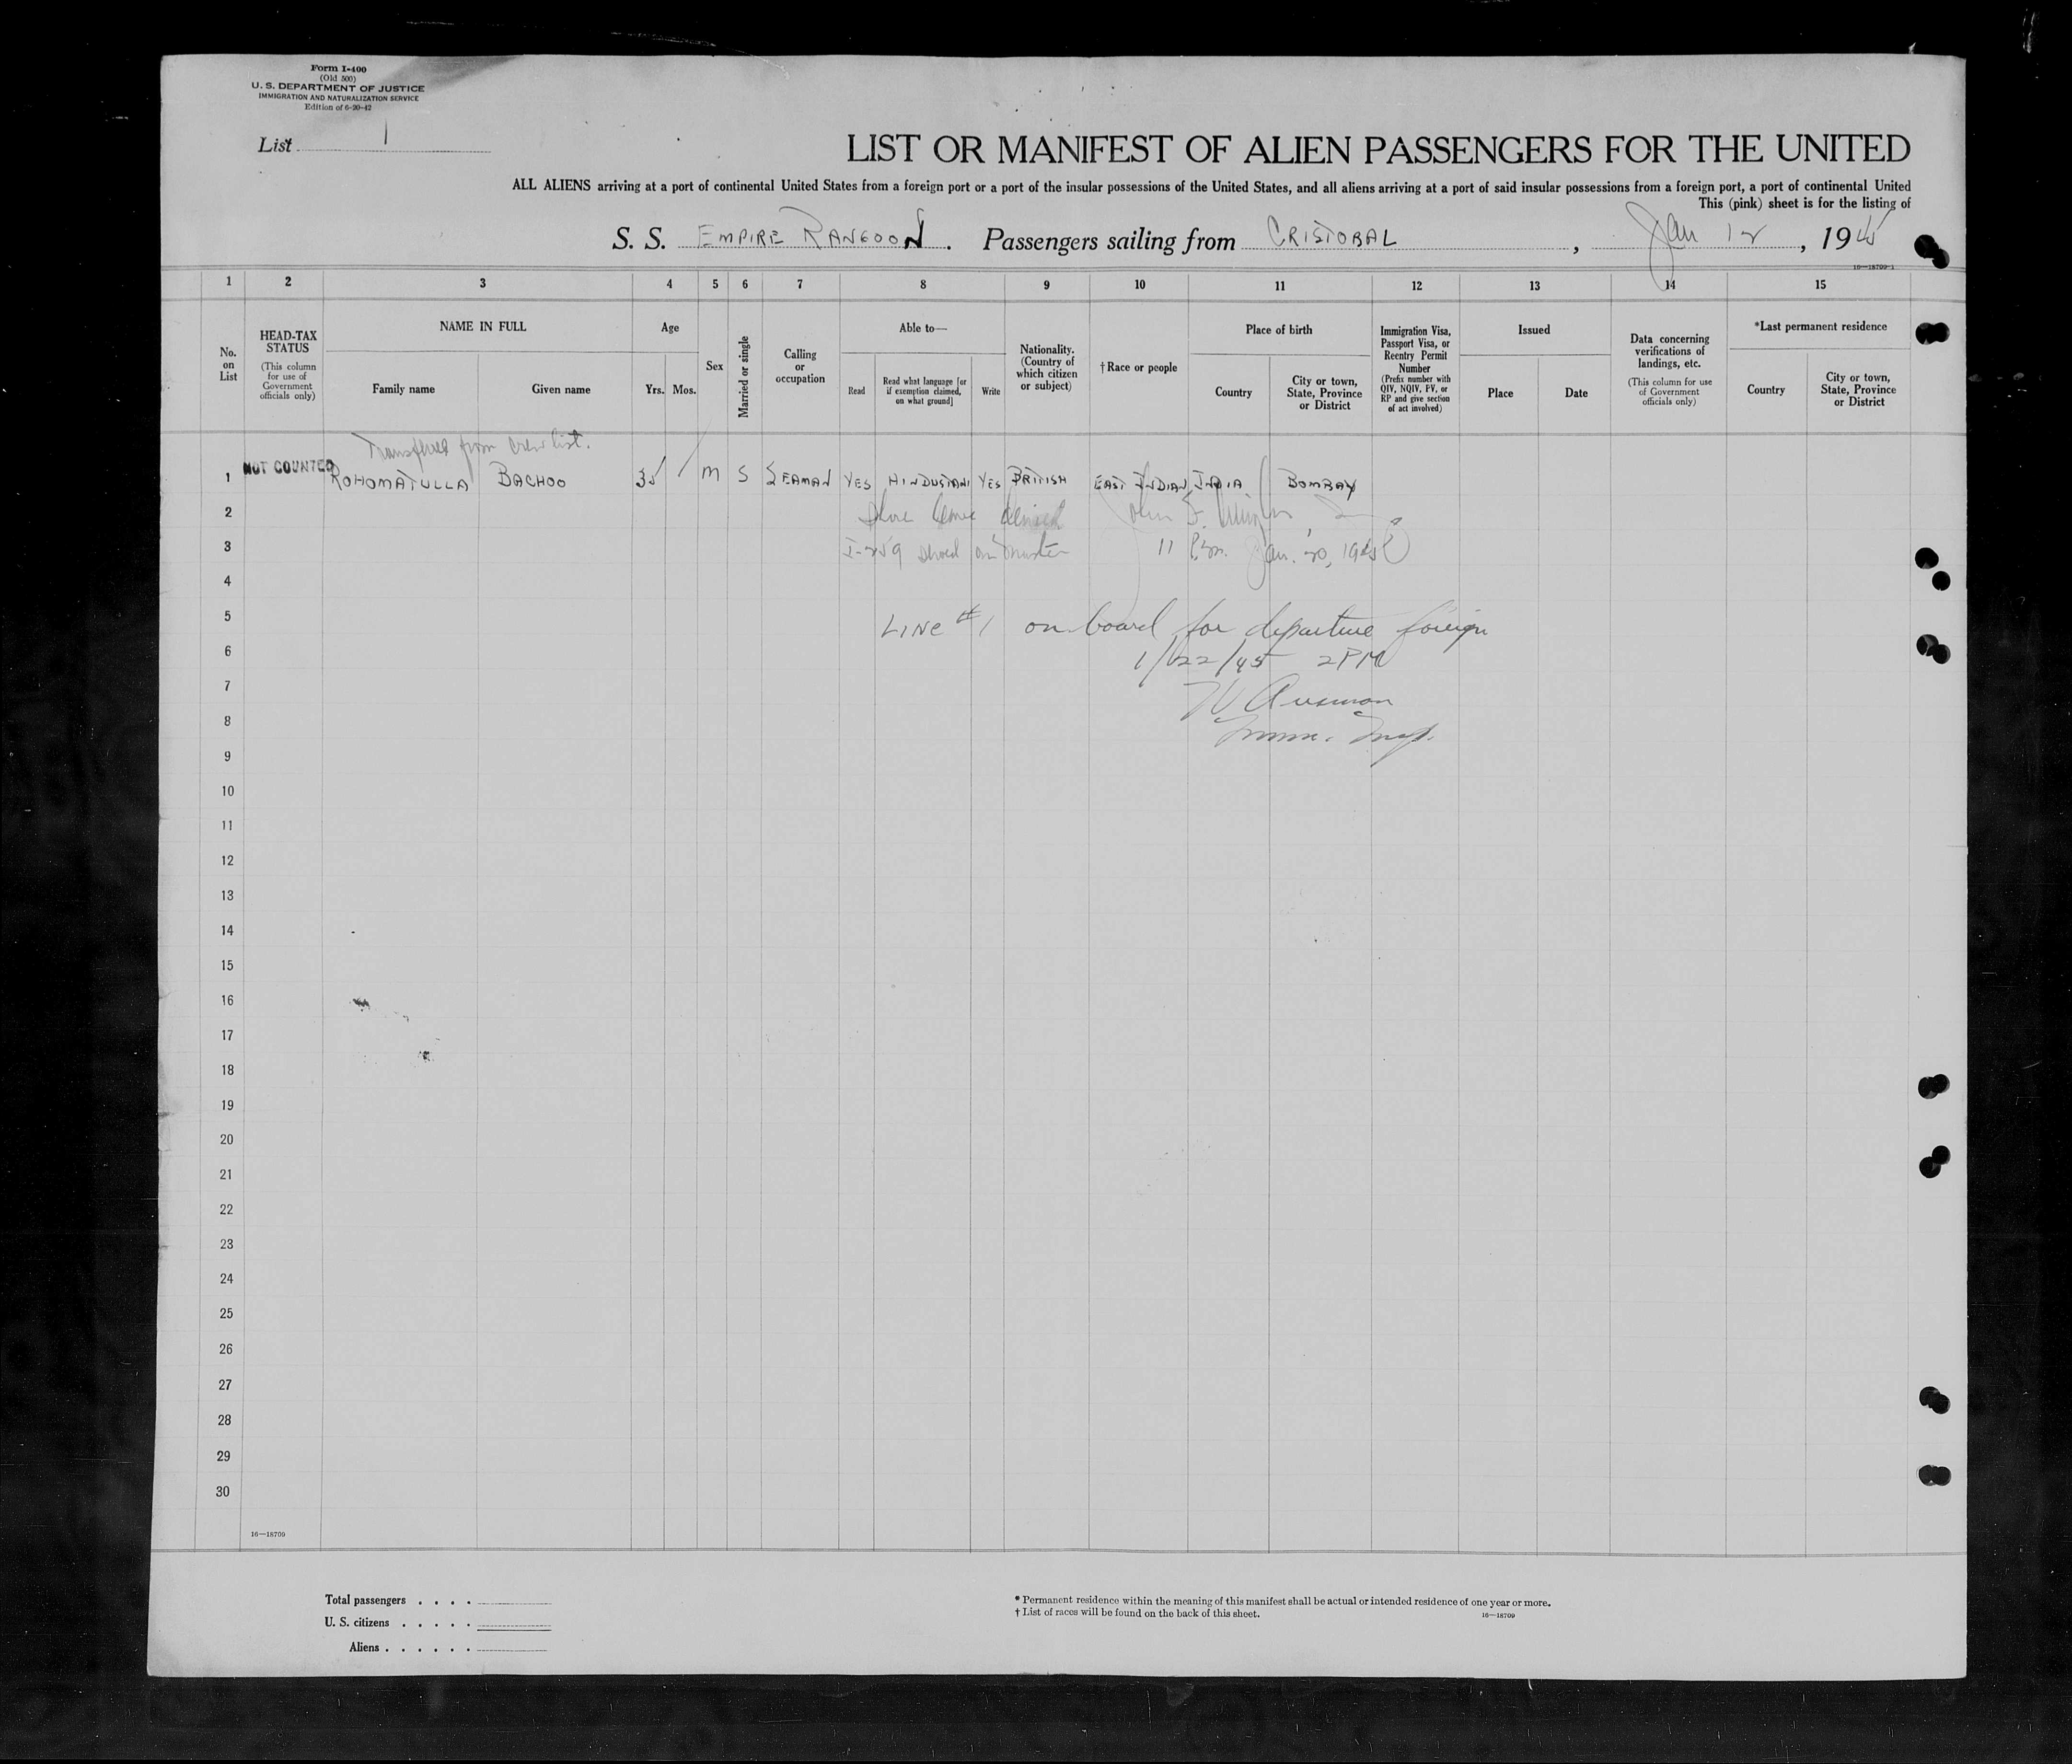 Form I-400
(Old 500)
U. S. DEPARTMENT OF JUSTICE
IMMIGRATION AND NATURALIZATION SERVICE
Edition of 6-20-42
List 1
LIST OR MANIFEST OF ALIEN PASSENGERS FOR THE UNITED
ALL ALIENS arriving at a port of continental United States from a foreign port or a port of the insular possessions of the United States, and all aliens arriving at a port of said insular possessions from a foreign port, a port of continental United
This (pink) sheet is for the listing of
S. S. EMPIRE RANGOON . Passengers sailing from CRISTOBAL , Jan 12 , 1945
16—18709-1
1 2 3 4 5 6 7 8 9 10 11 12 13 14 15
No. on List
HEAD-TAX STATUS (This column for use of Government officials only)
NAME IN FULL
Family name Given name
Age
Yrs. Mos.
Sex
Married or single
Calling or occupation
Able to—
Read
Read what language [or if exemption claimed, on what ground]
Write
Nationality. (Country of which citizen or subject)
†Race or people
Place of birth
Country
City or town, State, Province or District
Immigration Visa, Passport Visa, or Reentry Permit Number (Prefix number with QIV, NQIV, PV, or RP and give section of act involved)
Issued
Place Date
Data concerning verifications of landings, etc. (This column for use of Government officials only)
*Last permanent residence
Country
City or town, State, Province or District
Transferred from crew list.
1 NOT COUNTED ROHOMATULLA BACHOO 35 M S SEAMAN YES HINDUSTANI YES BRITISH EAST INDIAN INDIA BOMBAY
2 Shore leave denied John F.
3 I-259 served on master 11 P.m. Jan. 20, 1945
4
5 LINE #1 on board for departure foreign
6 1/22/45 2PM
7
8 Imm. Insp.
9
10
11
12
13
14
15
16
17
18
19
20
21
22
23
24
25
26
27
28
29
30
16—18709
Total passengers . . . .
U. S. citizens . . . . .
Aliens . . . . . .
* Permanent residence within the meaning of this manifest shall be actual or intended residence of one year or more.
† List of races will be found on the back of this sheet.
16—18709